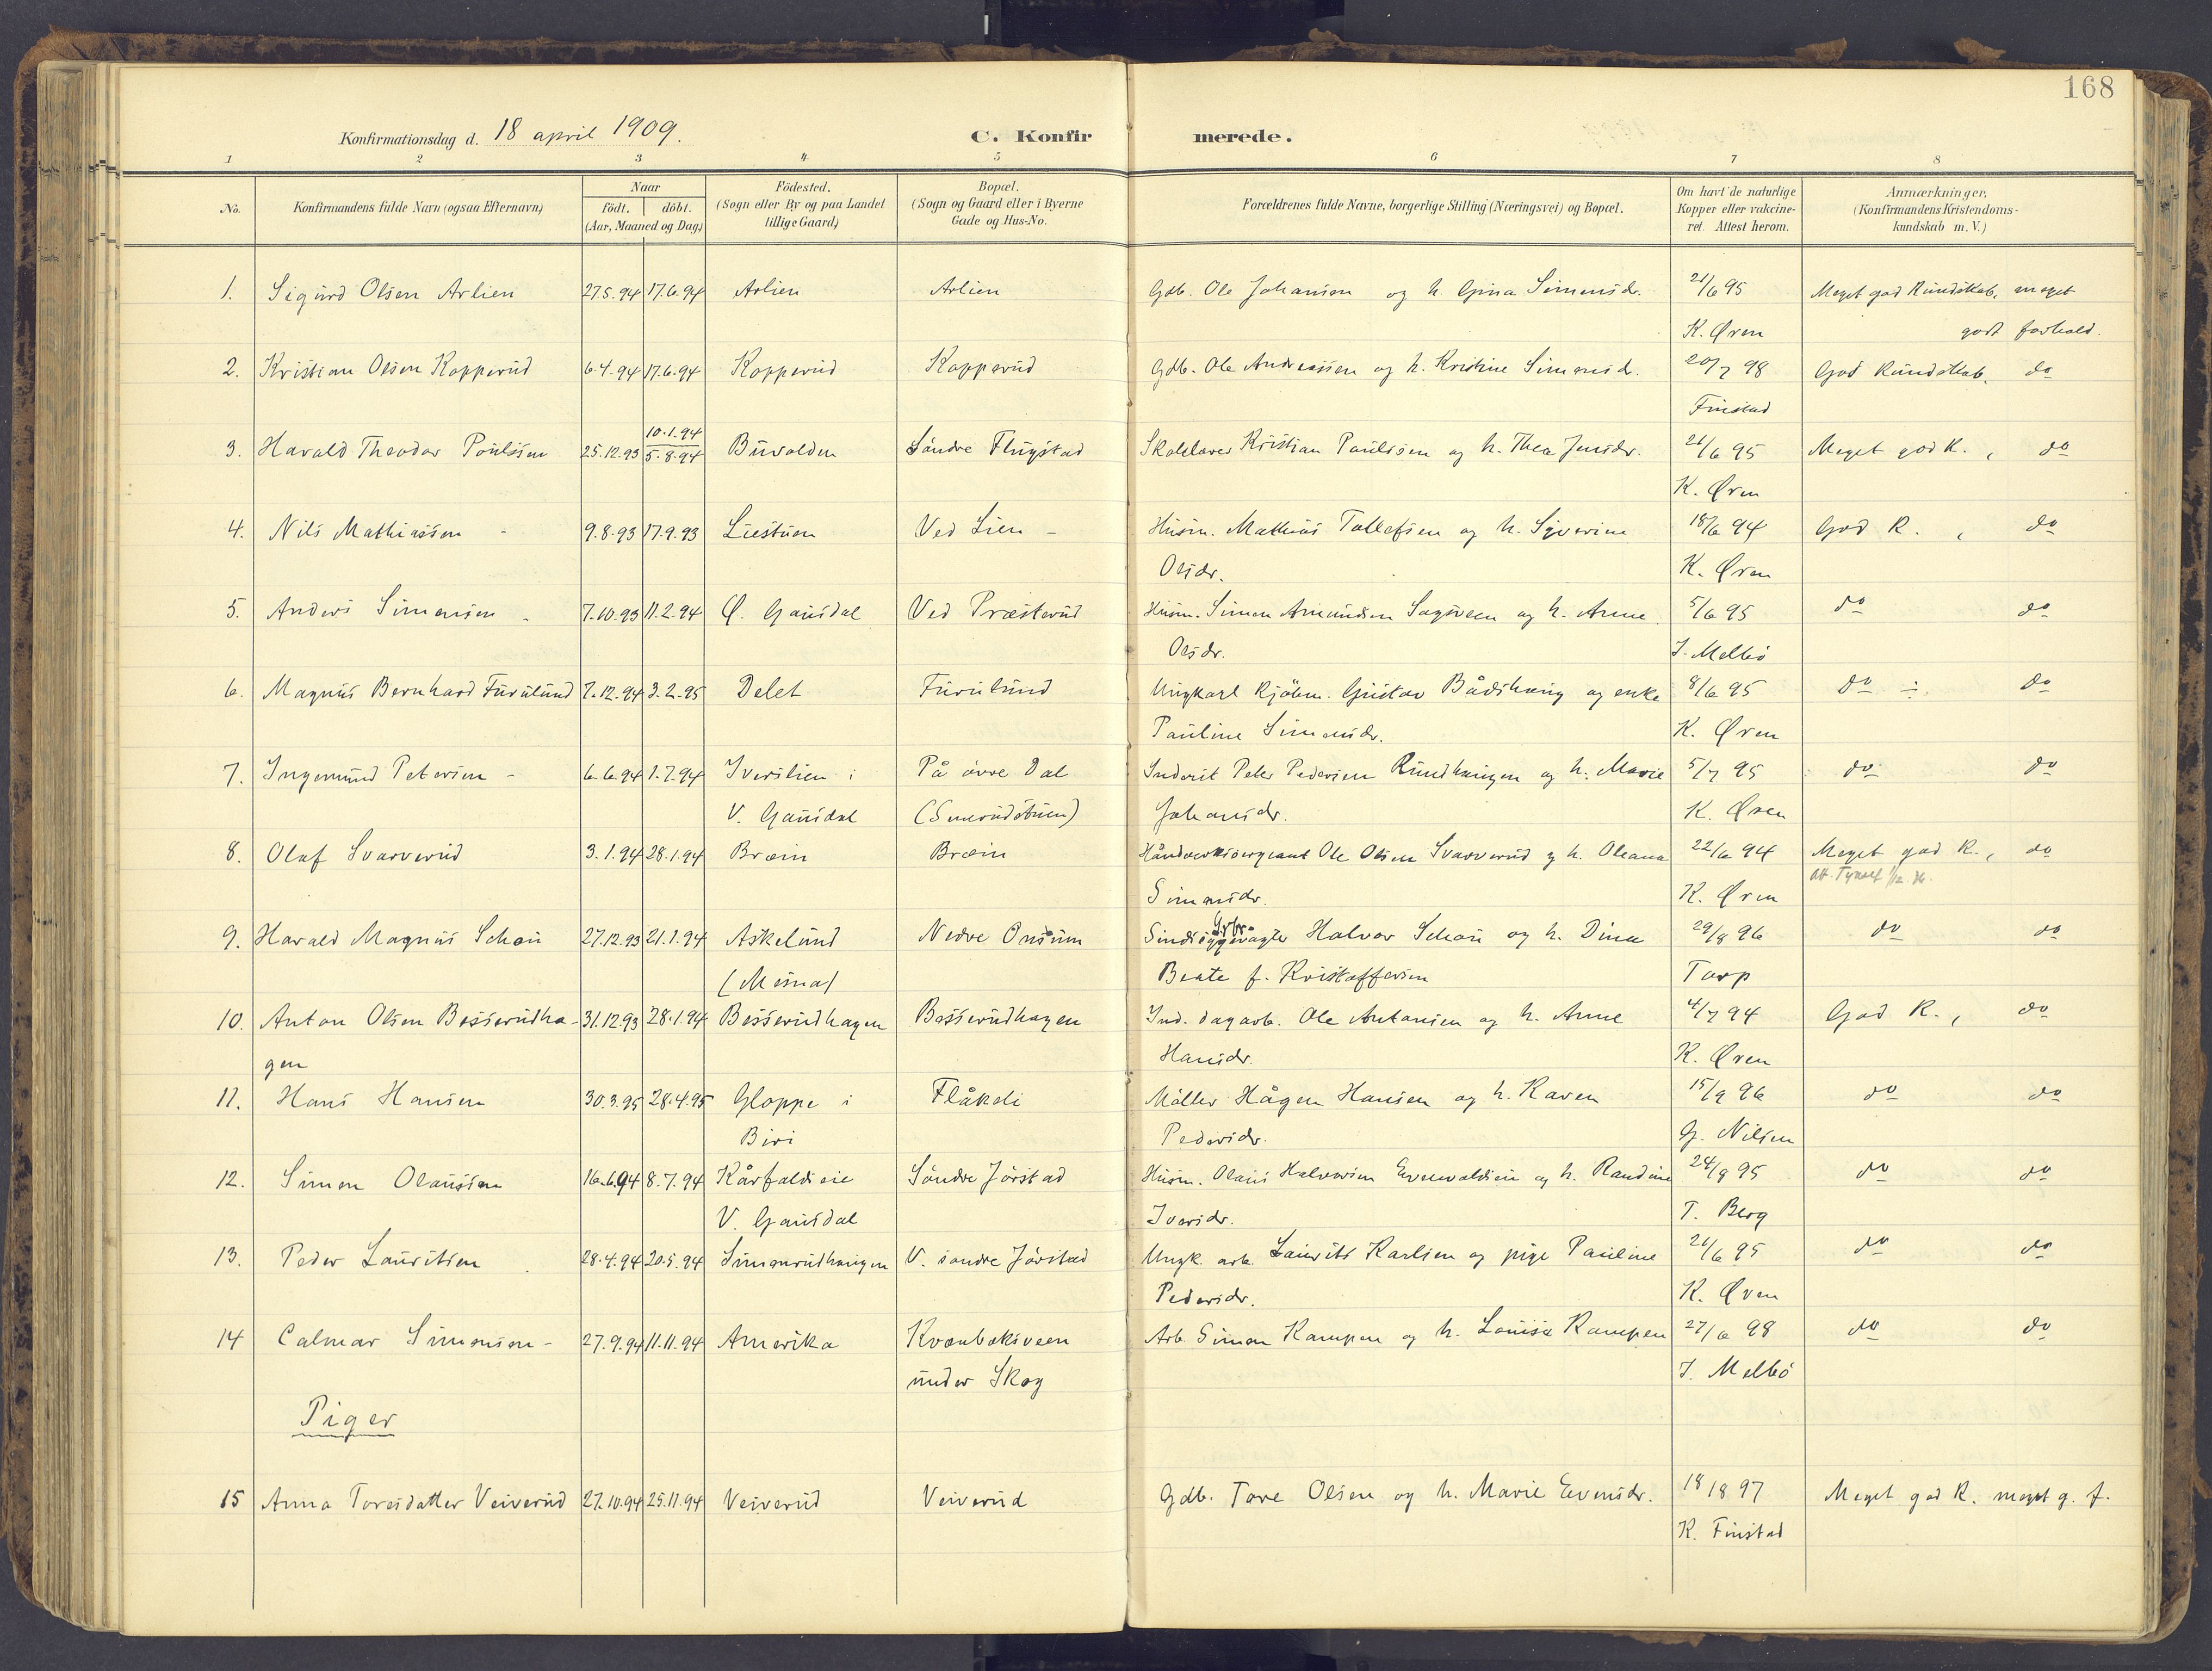 168
Konfirmationsdag d. 18 april 1909.
C. Konfirmerede.
1 2 3 4 5 6 7 8
No. Konfirmandens fulde Navn (ogsaa Efternavn) Naar Födt. döbt. (Aar, Maaned og Dag) Födested. (Sogn eller By og paa Landet tillige Gaard) Bopæl. (Sogn og Gaard eller i Byerne Gade og Hus-No. Forældrenes fulde Navne, borgerlige Stilling (Næringsvei) og Bopæl. Om havt de naturlige Kopper eller vakcineret. Attest herom. Anmærkninger, (Konfirmandens Kristendomskundskab m. V.)
1. Sigurd Olsen Arlien 27.5.94 17.6.94 Arlien Arlien Gdb. Ole Johansen og h. Gina Simensdr. 21/6 95 Meget god Kundskab, meget
K. Øren godt forhold.
2. Kristian Olsen Kopperud 6.4.94 17.6.94 Kopperud Kopperud Gdb. Ole Andreassen og h. Kristine Simensdr. 20/7 98 God Kundskab, do
Finstad
10.1.94
3. Harald Theodor Paulsen 25.12.93 5.8.94 Buvolden Søndre Flugstad Kristian Paulsen og h. Thea Jensdr. 21/6 95 Meget god K. , do
K. Øren
4. Nils Mathiassen - 9.8.93 17.9.93 Liestuen Ved Lien - Husm. Mathias Tollefsen og h. Syverine 18/6 94 God K. , do
Olsdr. K. Øren
5. Anders Simensen - 7.10.93 11.2.94 Ø. Gausdal Ved Præsterud Husm. Simen Amundsen Sagsveen og h. Anne 5/6 95 do do
Olsdr. J. Melbö
6. Magnus Bernhard Furulund 7.12.94 3.2.95 Delet Furulund Ungkarl Kjöbm. Gustav Bådshaug og enke 8/6 95 do ÷ do
Pauline Simensdr. K. Øren
7. Ingemund Petersen - 6.6.94 1.7.94 Iverslien i På övre Dal Inderst Peder Pedersen Rundhaugen og h. Marie 5/7 95 do do
V. Gausdal (Smerudstuen) Johansdr. K. Øren
8. Olaf Svarverud 3.1.94 28.1.94 Bræin Bræin Håndverksersjeant Ole Olsen Svarverud og h. Oleana 22/6 94 Meget god K., do
Simensdr. K. Øren
9. Harald Magnus Schou 27.12.93 21.1.94 Askelund Nedre Onsum Halvor Schou og h. Dina 29/8 96 do do
(Mesna) Beate f. Kristoffersen Torp
10. Anton Olsen Besserudha- 31.12.93 28.1.94 Besserudhagen Besserudhagen Ind. dagarb. Ole Antonsen og h. Anne 4/7 94 God K., do
gen Hansdr. K. Øren
11. Hans Hansen 30.3.95 28.4.95 Gloppe i Flåkeli Möller Hågen Hansen og h. Karen 15/9 96 do do
Biri Pedersdr. G. Nilsen
12. Simen Olaussen 16.6.94 8.7.94 Kårfaldseie Söndre Jörstad Husm. Olaus Halvorsen Evenvoldseie og h. Randine 24/9 95 do do
V. Gausdal Iversdr. T. Berg
13. Peder Lauritsen 28.4.94 20.5.94 Simenrudhaugen V. söndre Jörstad Ungk. arb. Laurits Karlsen og pige Pauline 21/6 95 do do
Pedersdr. K. Øren
14 Calmar Simensen - 27.9.94 11.11.94 Amerika Kvænbæksveen Arb. Simen Kampen og h. Louise Kampen 27/6 98 do do
under Skog J. Melbö
Piger
15 Anna Toresdatter Veiverud 27.10.94 25.11.94 Veiverud Veiverud Gdb. Tore Olsen og h. Marie Evensdr. 18/8 97 Meget god K. meget g. f.
K. Finstad